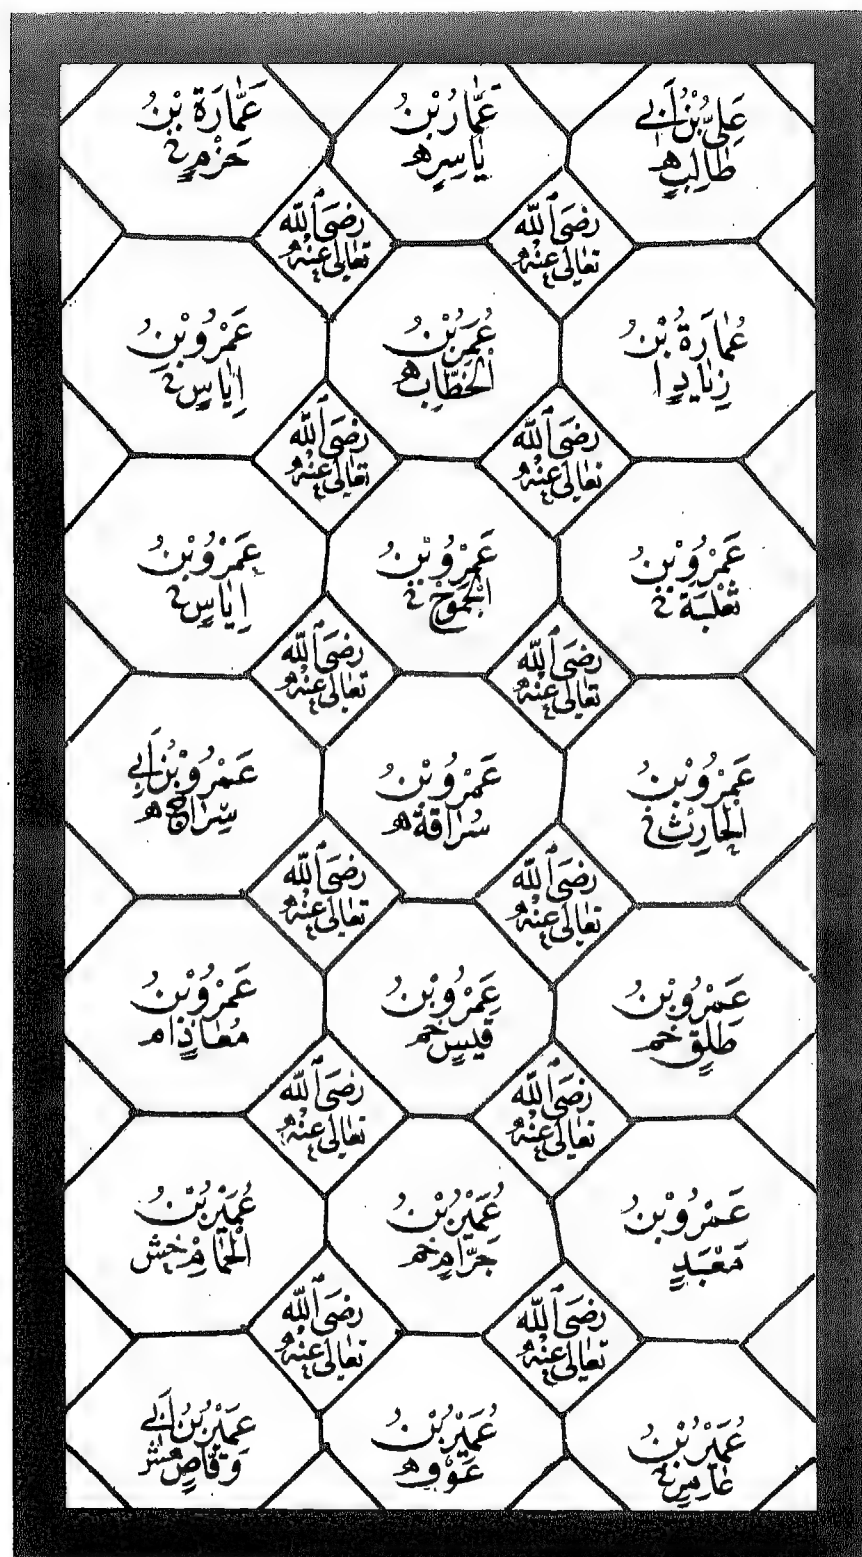 عَلِيُّ بْنُ أَبِي
طَالِبٍ ھ
عَمَّارُ بْنُ
يَاسِرٍ ھ
عَمَّارَة بْنُ
حَزْمٍ خ
رَضِیَ اللّٰه
تَعَالٰى عَنْهُ
رَضِیَ اللّٰه
تَعَالٰى عَنْهُ
عُمَارَةُ بْنُ
زِيَادٍ ا
عُمَرُ بْنُ
الْخَطَّابِ ھ
عَمْرُو بْنُ
اِيَاسٍ خ
رَضِیَ اللّٰه
تَعَالٰى عَنْهُ
رَضِیَ اللّٰه
تَعَالٰى عَنْهُ
عَمْرُو بْنُ
ثَعْلَبَةَ خ
عَمْرُو بْنُ
الْجَمُوْحِ خ
عَمْرُو بْنُ
اِيَاسٍ خ
رَضِیَ اللّٰه
تَعَالٰى عَنْهُ
رَضِیَ اللّٰه
تَعَالٰى عَنْهُ
عَمْرُو بْنُ
الْحَارِثِ خ
عَمْرُو بْنُ
سُرَاقَةَ ھ
عَمْرُو بْنُ أَبِي
سِرَاجٍ ھ
رَضِیَ اللّٰه
تَعَالٰى عَنْهُ
رَضِیَ اللّٰه
تَعَالٰى عَنْهُ
عَمْرُو بْنُ
طَلِقٍ خم
عَمْرُو بْنُ
قَيْسٍ خم
عَمْرُو بْنُ
مُعَاذٍ ام
رَضِیَ اللّٰه
تَعَالٰى عَنْهُ
رَضِیَ اللّٰه
تَعَالٰى عَنْهُ
عَمْرُو بْنُ
مَعْبَدٍ
عُمَيْرُ بْنُ
حَرَامٍ خم
عُمَيْرُ بْنُ
الْحُمَامِ خش
رَضِیَ اللّٰه
تَعَالٰى عَنْهُ
رَضِیَ اللّٰه
تَعَالٰى عَنْهُ
عُمَيْرُ بْنُ
عَامِرٍ خ
عُمَيْرُ بْنُ
عَوْفٍ ھ
عُمَيْرُ بْنُ أَبِي
وَقَّاصٍ مش